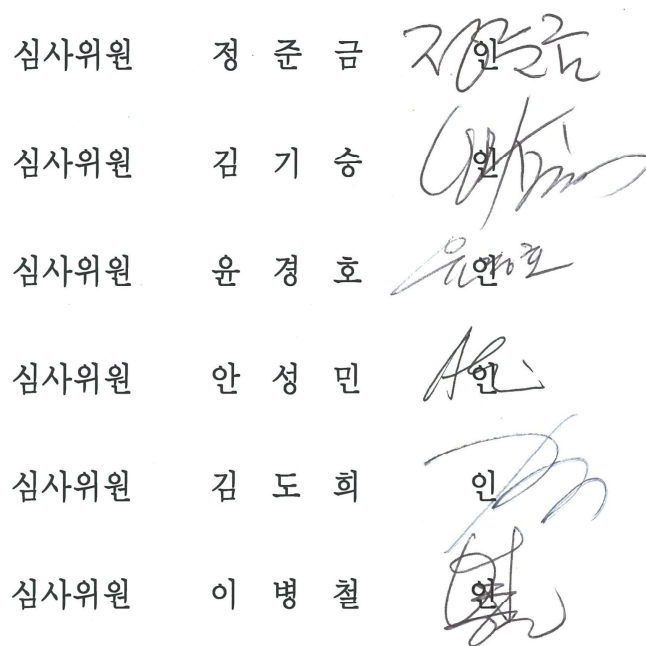 심사위원 정 준 금 인
심사위원 김 기 승 인
심사위원 윤 경 호 인
심사위원 안 성 민 인
심사위원 김 도 희 인
심사위원 이 병 철 인